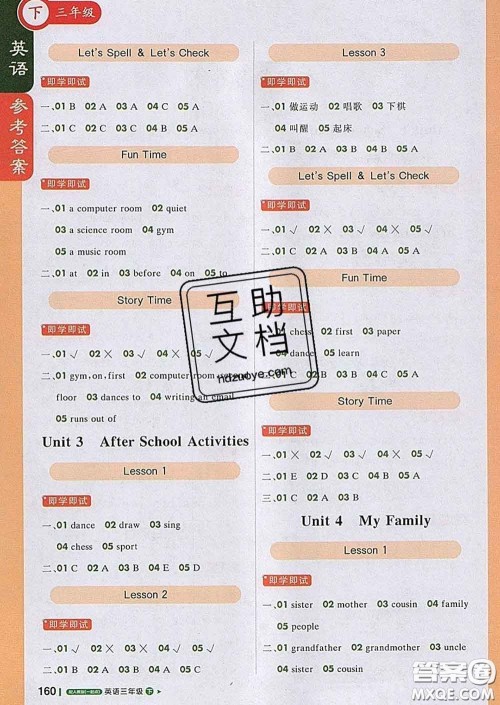 下 三年级
英语
参考答案
Let's Spell & Let's Check
即学即试
一、01 B 02 A 03 A 04 C 05 A
二、01 B 02 B 03 C 04 B 05 A
Fun Time
即学即试
一、01 a computer room 02 quiet
03 a science room 04 gym
05 a music room
二、01 at 02 in 03 before 04 on 05 to
Story Time
即学即试
一、01 √ 02 × 03 √ 04 √ 05 √
二、01 gym, on, first 02 computer room
floor 03 dances to 04 writing an email
05 runs out of
Unit 3 After School Activities
Lesson 1
即学即试
一、01 dance 02 draw 03 sing
04 chess 05 sport
二、01 C 02 A 03 B 04 B 05 A
Lesson 2
即学即试
一、01 × 02 × 03 √ 04 × 05 √
二、01 C 02 A 03 E 04 D 05 B
160 英语三年级 下
Lesson 3
即学即试
一、01 做运动 02 唱歌 03 下棋
04 叫醒 05 起床
二、01 C 02 B 03 A 04 C 05 A
Let's Spell & Let's Check
即学即试
一、01 √ 02 √ 03 × 04 × 05 √
二、01 B 02 A 03 A 04 B 05 B
Fun Time
即学即试
chess 02 first 03 paper
04 dance 05 learn
01 C 02 A 03 B 04 C 05 A
Story Time
即学即试
一、01 × 02 √ 03 × 04 √ 05 √
二、01 E 02 D 03 C 04 B 05 A
三、01 C 02 A 03 B
Unit 4 My Family
Lesson 1
即学即试
一、01 sister 02 mother 03 cousin 04 family
05 people
二、01 grandfather 02 grandmother 03 uncle
04 sister 05 cousin
互助
文档
ndzuoye.com
答案圈